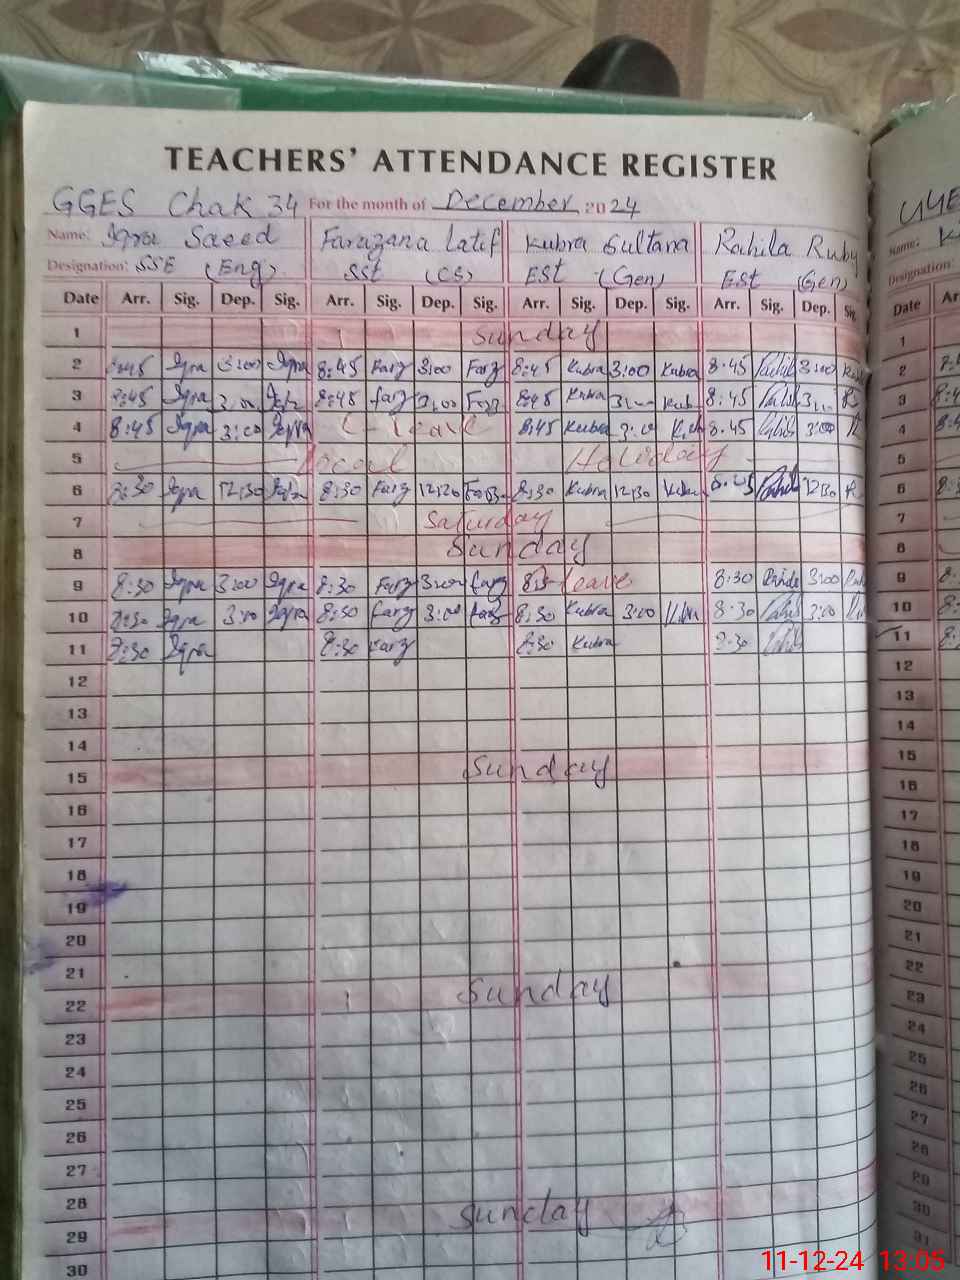 TEACHERS' ATTENDANCE REGISTER
GGES Chak 34 For the month of December 2024
Name: Iqra Saeed Farazana Latif Kubra Sultana Rahila Ruby
Designation: SSE (Eng) SSt (CS) ESt (Gen) ESt (Gen)
Date Arr. Sig. Dep. Sig. Arr. Sig. Dep. Sig. Arr. Sig. Dep. Sig. Arr. Sig. Dep. Sig.
1 Sunday
2 8:45 Iqra 3:00 Iqra 8:45 Farz 3:00 Farz 8:45 Kubra 3:00 Kubra 8:45 3:00
3 8:45 Iqra 3:00 8:45 farz 3:00 Farz 8:45 Kubra 3:00 Kub 8:45
4 8:45 Iqra 3:00 Iqra Leave 8:45 Kubra 3:00 8:45 3:00
5 Local Holiday
6 8:30 Iqra 12:30 Iqra 8:30 Farz 12:30 Farz 8:30 Kubra 12:30 Kubra 12:30
7 Saturday
8 Sunday
9 8:30 Iqra 3:00 Iqra 8:30 Farz 3:00 farz leave 8:30 3:00
10 8:30 Iqra 3:00 Iqra 8:30 Farz 3:00 farz 8:30 Kubra 3:00 Kubra 8:30 3:00
11 8:30 Iqra 8:30 Farz 8:30 Kubra 8:30
12
13
14
15 Sunday
16
17
18
19
20
21
22 Sunday
23
24
25
26
27
28
29 Sunday
30
Name:
Designation
Date
1
2
3
4
5
6
7
8
9
10
11
12
13
14
15
16
17
18
19
20
21
22
23
24
25
26
27
28
29
30
31
11-12-24 13:05